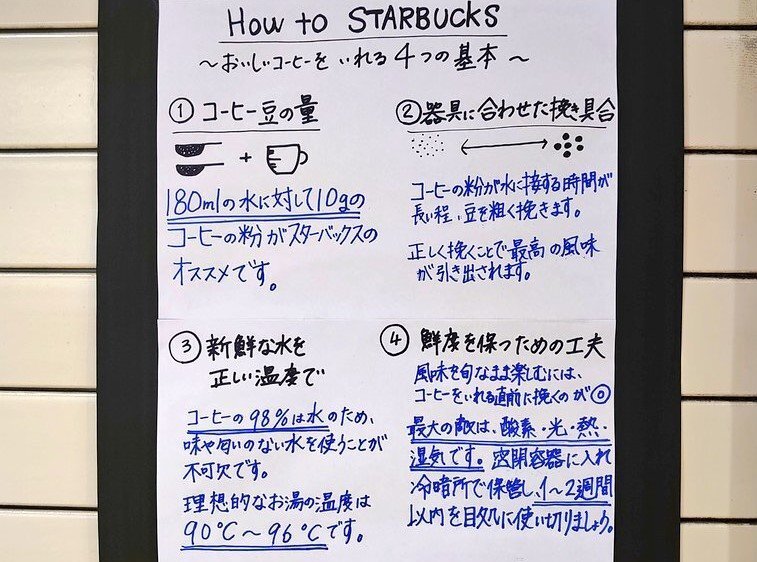 How to STARBUCKS
～おいしいコーヒーをいれる4つの基本～
① コーヒー豆の量
+
180mlの水に対して10gの
コーヒーの粉がスターバックスの
オススメです。
② 器具に合わせた挽き具合
コーヒーの粉が水に接する時間が
長い程、豆を粗く挽きます。
正しく挽くことで最高の風味
が引き出されます。
③ 新鮮な水を
正しい温度で
コーヒーの98%は水のため、
味や匂いのない水を使うことが
不可欠です。
理想的なお湯の温度は
90℃～96℃です。
④ 鮮度を保つための工夫
風味を旬なまま楽しむには、
コーヒーをいれる直前に挽くのが◎
最大の敵は、酸素・光・熱・
湿気です。密閉容器に入れ
冷暗所で保管し、1～2週間
以内を目処に使い切りましょう。